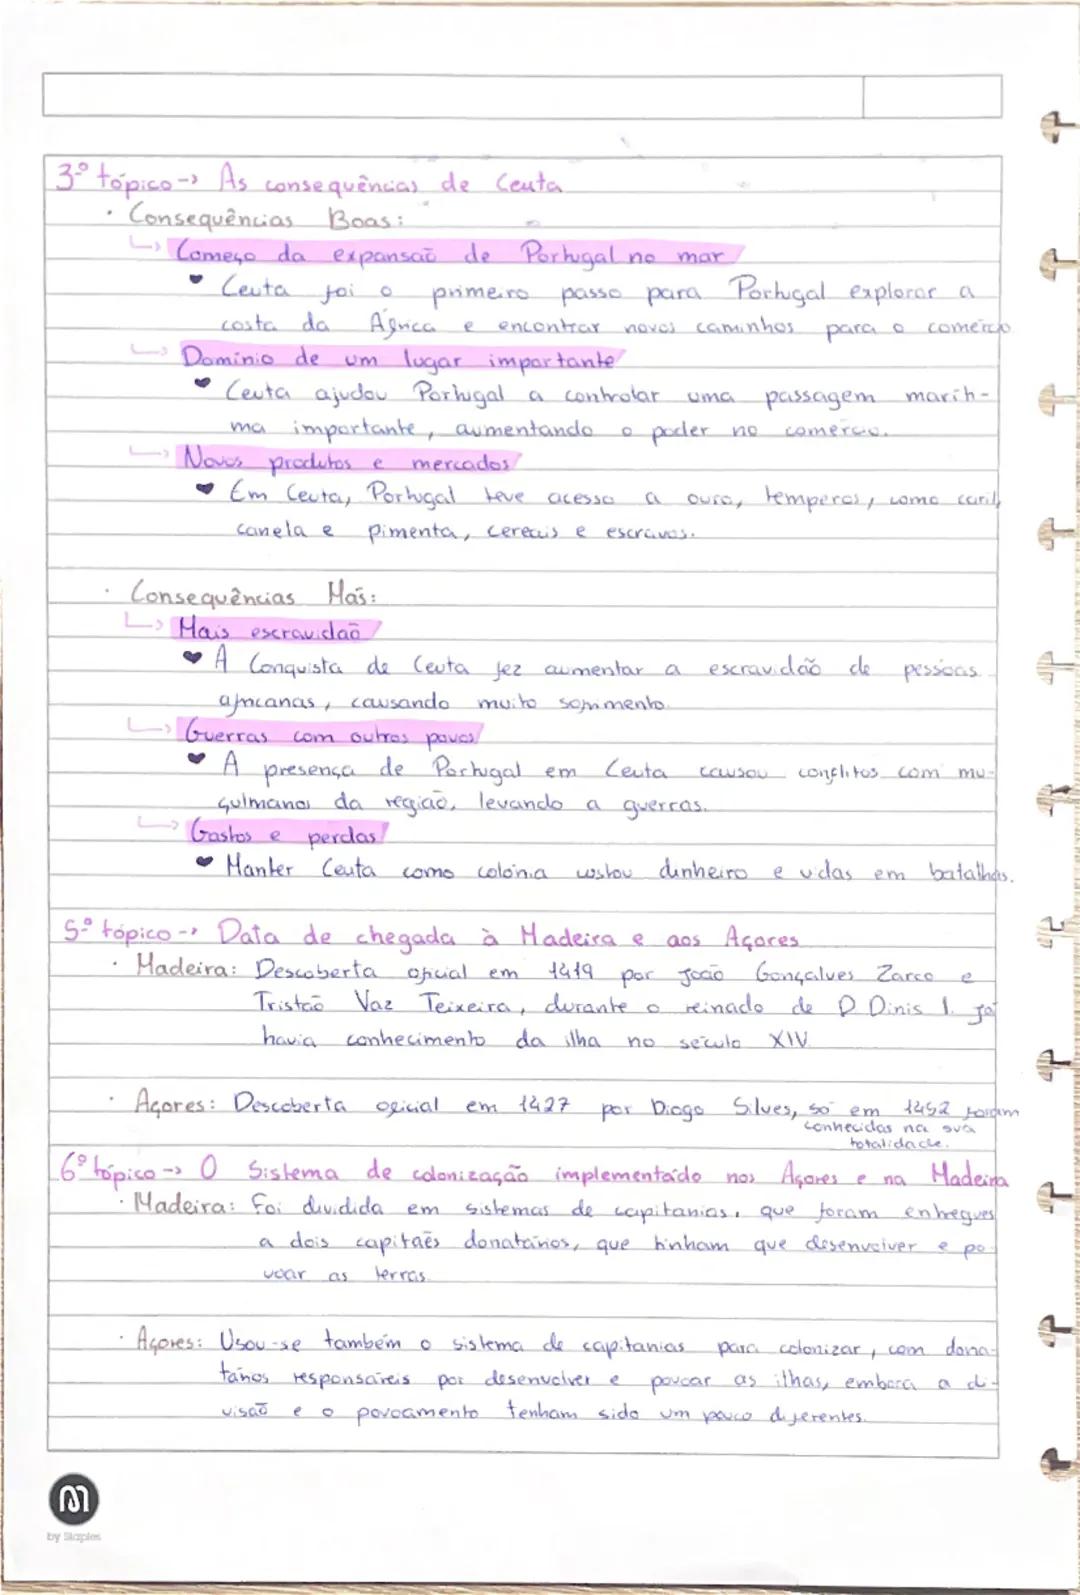 3º tópico -> As consequências de Ceuta
· Consequências Boas:
↳ Começo da expansão de Portugal no mar
♥ Ceuta foi o primeiro passo para Portugal explorar a
costa da África e encontrar novos caminhos para o comércio
↳ Domínio de um lugar importante
♥ Ceuta ajudou Portugal a controlar uma passagem maríti-
ma importante, aumentando o poder no comércio.
↳ Novos produtos e mercados
♥ Em Ceuta, Portugal teve acesso a ouro, temperos, como caril,
canela e pimenta, cereais e escravos.
· Consequências Más:
↳ Mais escravidão
♥ A Conquista de Ceuta fez aumentar a escravidão de pessoas
africanas, causando muito sofrimento.
↳ Guerras com outros povos
♥ A presença de Portugal em Ceuta causou conflitos com mu-
çulmanos da região, levando a guerras.
↳ Gastos e perdas
♥ Manter Ceuta como colónia custou dinheiro e vidas em batalhas.
5º tópico -> Data de chegada à Madeira e aos Açores
· Madeira: Descoberta oficial em 1419 por João Gonçalves Zarco e
Tristão Vaz Teixeira, durante o reinado de D. Dinis I. Já
havia conhecimento da ilha no século XIV
· Açores: Descoberta oficial em 1427 por Diogo Silves, só em 1452 foram
conhecidas na sua
totalidade.
6º tópico -> O Sistema de colonização implementado nos Açores e na Madeira
· Madeira: Foi dividida em sistemas de capitanias, que foram entregues
a dois capitães donatários, que tinham que desenvolver e po-
voar as terras.
· Açores: Usou-se também o sistema de capitanias para colonizar, com dona-
tários responsáveis por desenvolver e povoar as ilhas, embora a di-
visão e o povoamento tenham sido um pouco diferentes.
by Staples